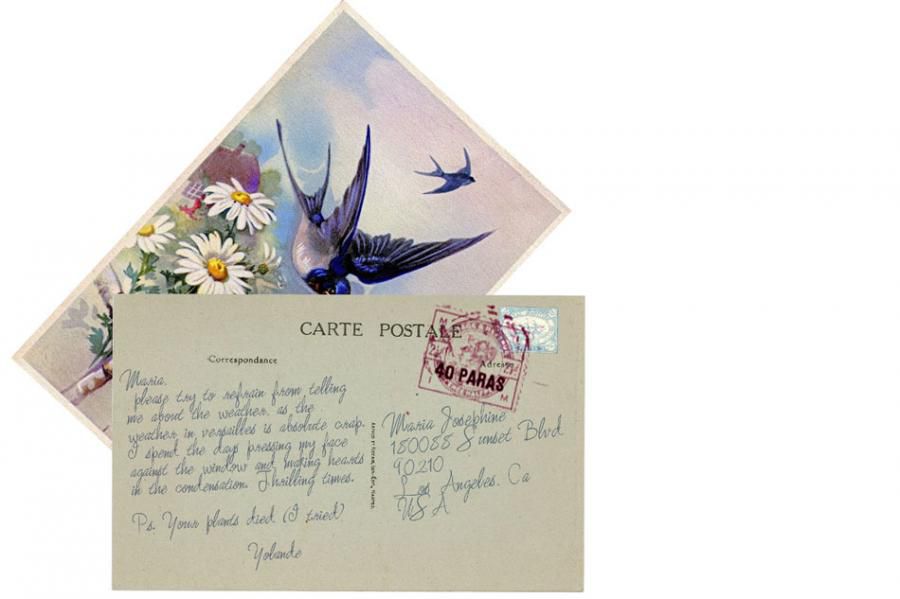 CARTE POSTALE
Correspondance
Adresse
40 PARAS
M
Maria,
please try to refrain from telling
me about the weather, as the
weather in versailles is absolute crap.
I spend the days pressing my face
against the window and making hearts
in the condensation. Thrilling times.
Ps. Your plants died (I tried)
Yolande
Maria Josephine
150088 Sunset Blvd
90210
Los Angeles. Ca
USA